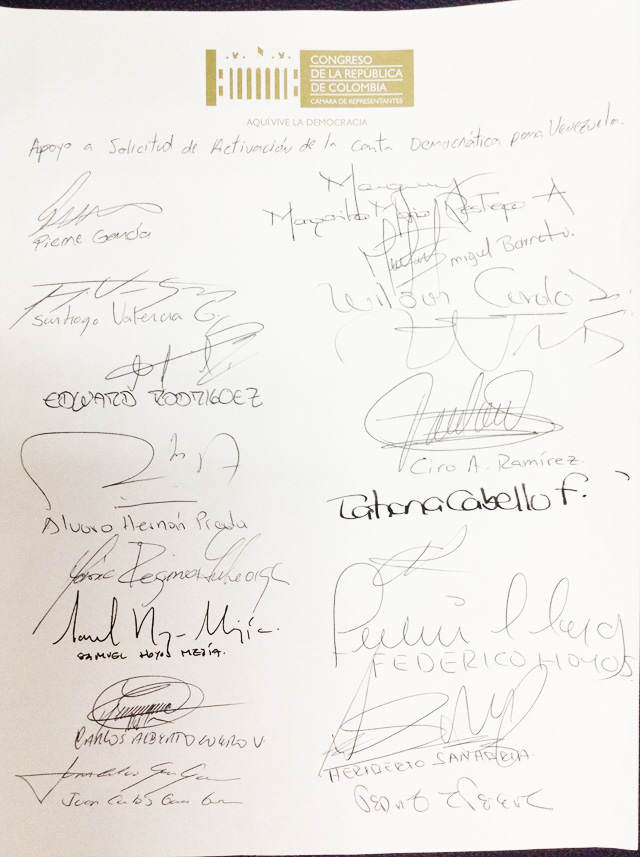 CONGRESO
DE LA REPÚBLICA
DE COLOMBIA
CÁMARA DE REPRESENTANTES
AQUÍ VIVE LA DEMOCRACIA
Apoyo a Solicitud de Activación de la Carta Democrática para Venezuela.
Pierre García
Santiago Valencia G.
EDWARD RODRIGUEZ
Alvaro Hernán Prada
María Regina
SAMUEL HOYOS MEJÍA.
CARLOS ALBERTO CUERO V
Juan Carlos
Margarita María Restrepo A
Miguel Barreto.
Wilson Cordo
Ciro A. Ramírez.
Tatiana Cabello F.
FEDERICO HOYOS
HERIBERTO SANABRIA